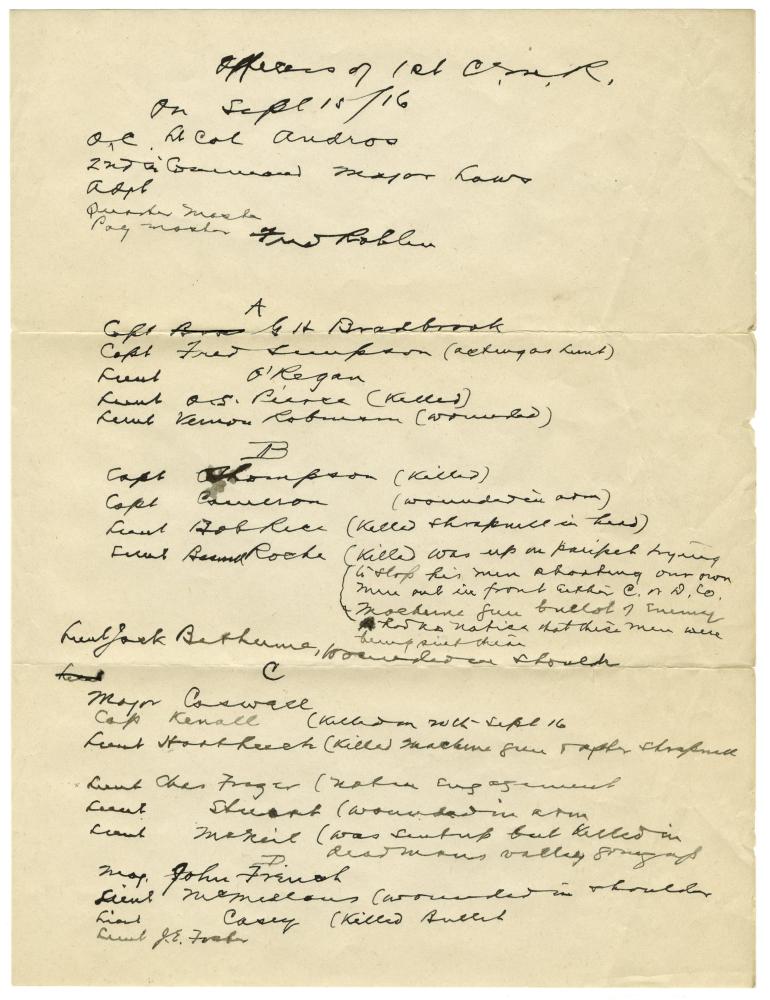 Officers of 1st C.M.R.
On Sept 15/16
O.C. Lt Col Andros
2nd in Command Major Laws
Adjt
Quarter Master
Pay Master Fred Roblin
A
Capt G H Bradbrook
Capt Fred Simpson (acting as Lieut)
Lieut O'Regan
Lieut O.S. Pierce (Killed)
Lieut Vernon Robinson (wounded)
B
Capt Thompson (Killed)
Capt Cameron (wounded in arm)
Lieut Bob Rice (Killed Shrapnell in head)
Lieut Roche (Killed was up on paripet trying
to stop his men shooting our own
men out in front Either C. or D. Co.
Machine Gun bullet of Enemy
Had no notice that these men were
being sent there
Lieut Jack Bethune, wounded in Shoulder
Lieut
C
Major Caswell
Cap Kenall (Killed on 20th Sept 16
Lieut (Killed Machine gun & after Shrapnell
Lieut Chas Frazer (not in Engagement
Lieut Stuart (wounded in arm
Lieut McNeil (was sent up but Killed in
dead mans valley going up
D
Maj. John French
Lieut McMillans (wounded in shoulder
Lieut Casey (Killed Bullet
Lieut J.E. Foster